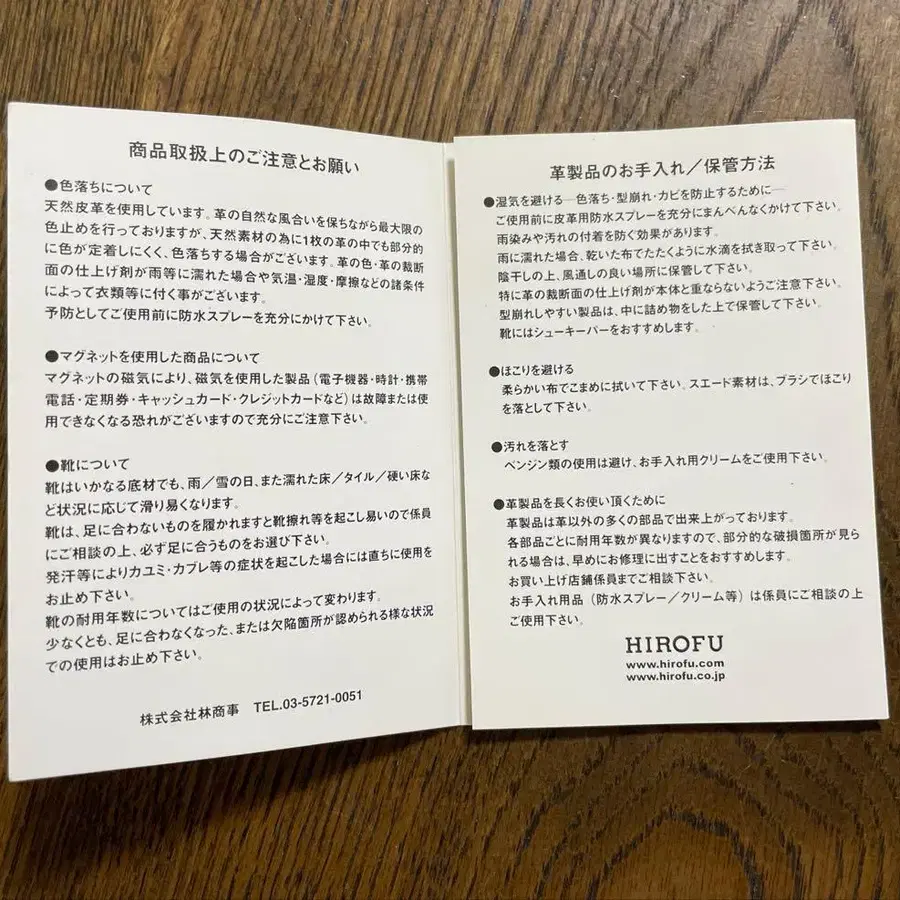 商品取扱上のご注意とお願い
●色落ちについて
天然皮革を使用しています。革の自然な風合いを保ちながら最大限の
色止めを行っておりますが、天然素材の為に1枚の革の中でも部分的
に色が定着しにくく、色落ちする場合がございます。革の色・革の裁断
面の仕上げ剤が雨等に濡れた場合や気温・湿度・摩擦などの諸条件
によって衣類等に付く事がございます。
予防としてご使用前に防水スプレーを充分にかけて下さい。
●マグネットを使用した商品について
マグネットの磁気により、磁気を使用した製品(電子機器・時計・携帯
電話・定期券・キャッシュカード・クレジットカードなど)は故障または使
用できなくなる恐れがございますので充分にご注意下さい。
●靴について
靴はいかなる底材でも、雨/雪の日、また濡れた床/タイル/硬い床な
ど状況に応じて滑り易くなります。
靴は、足に合わないものを履かれますと靴擦れ等を起こし易いので係員
にご相談の上、必ず足に合うものをお選び下さい。
発汗等によりカユミ・カブレ等の症状を起こした場合には直ちに使用を
お止め下さい。
靴の耐用年数についてはご使用の状況によって変わります。
少なくとも、足に合わなくなった、または欠陥箇所が認められる様な状況
での使用はお止め下さい。
株式会社林商事 TEL.03-5721-0051
革製品のお手入れ/保管方法
●湿気を避ける―色落ち・型崩れ・カビを防止するために―
ご使用前に皮革用防水スプレーを充分にまんべんなくかけて下さい。
雨染みや汚れの付着を防ぐ効果があります。
雨に濡れた場合、乾いた布でたたくように水滴を拭き取って下さい。
陰干しの上、風通しの良い場所に保管して下さい。
特に革の裁断面の仕上げ剤が本体と重ならないようご注意下さい。
型崩れしやすい製品は、中に詰め物をした上で保管して下さい。
靴にはシューキーパーをおすすめします。
●ほこりを避ける
柔らかい布でこまめに拭いて下さい。スエード素材は、ブラシでほこり
を落として下さい。
●汚れを落とす
ベンジン類の使用は避け、お手入れ用クリームをご使用下さい。
●革製品を長くお使い頂くために
革製品は革以外の多くの部品で出来上がっております。
各部品ごとに耐用年数が異なりますので、部分的な破損箇所が見ら
れる場合は、早めにお修理に出すことをおすすめします。
お買い上げ店舗係員までご相談下さい。
お手入れ用品(防水スプレー/クリーム等)は係員にご相談の上
ご使用下さい。
HIROFU
www.hirofu.com
www.hirofu.co.jp